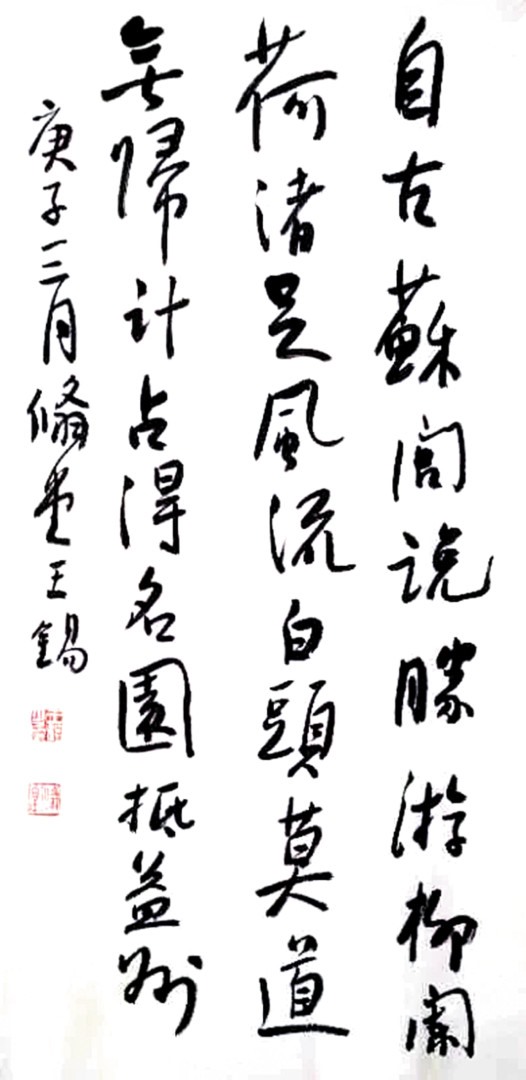 自古蘇閶說勝游柳闌
荷渚足風流白頭莫道
無歸計占得名園抵益州
庚子三月翛堂王錫